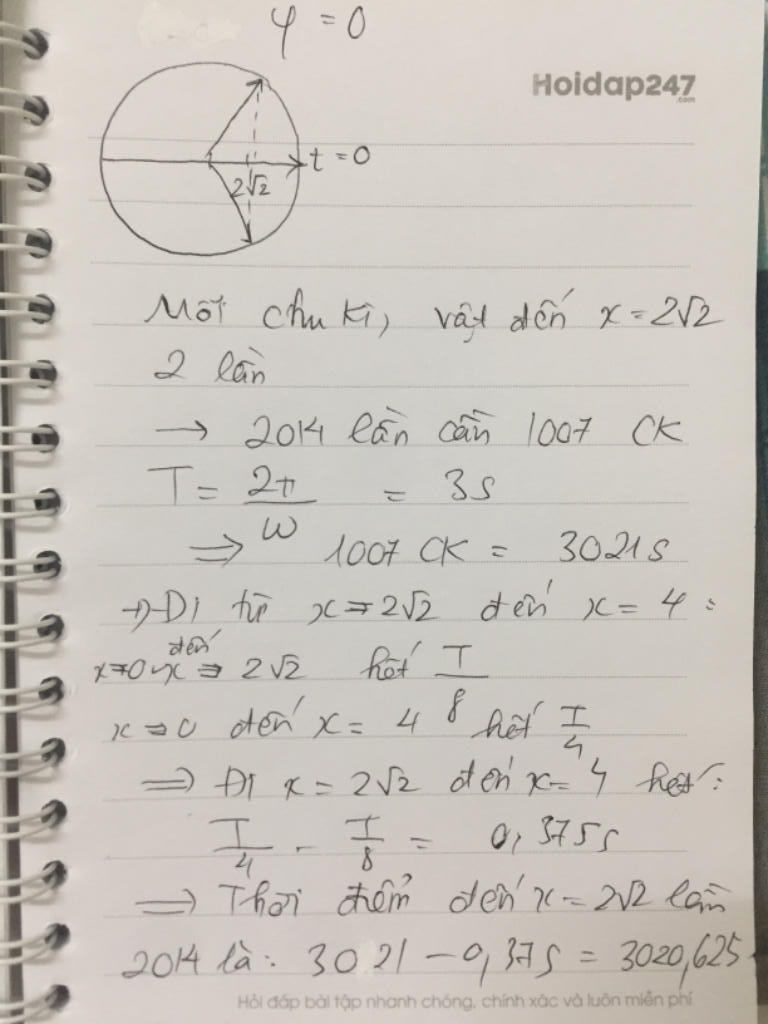 φ = 0
Hoidap247
.com
t = 0
2√2
Mỗi chu kì, vật đến x = 2√2
2 lần
→ 2014 lần cần 1007 CK
T = 2π/ω = 3s
⇒ 1007 CK = 3021s
→ Đi từ x = 2√2 đến x = 4 :
x = 0 đến x = 2√2 hết T/8
x = 0 đến x = 4 hết T/4
⇒ Đi x = 2√2 đến x = 4 hết :
T/4 - T/8 = 0,375s
⇒ Thời điểm đến x = 2√2 lần
2014 là : 3021 - 0,375 = 3020,625
Hỏi đáp bài tập nhanh chóng, chính xác và luôn miễn phí